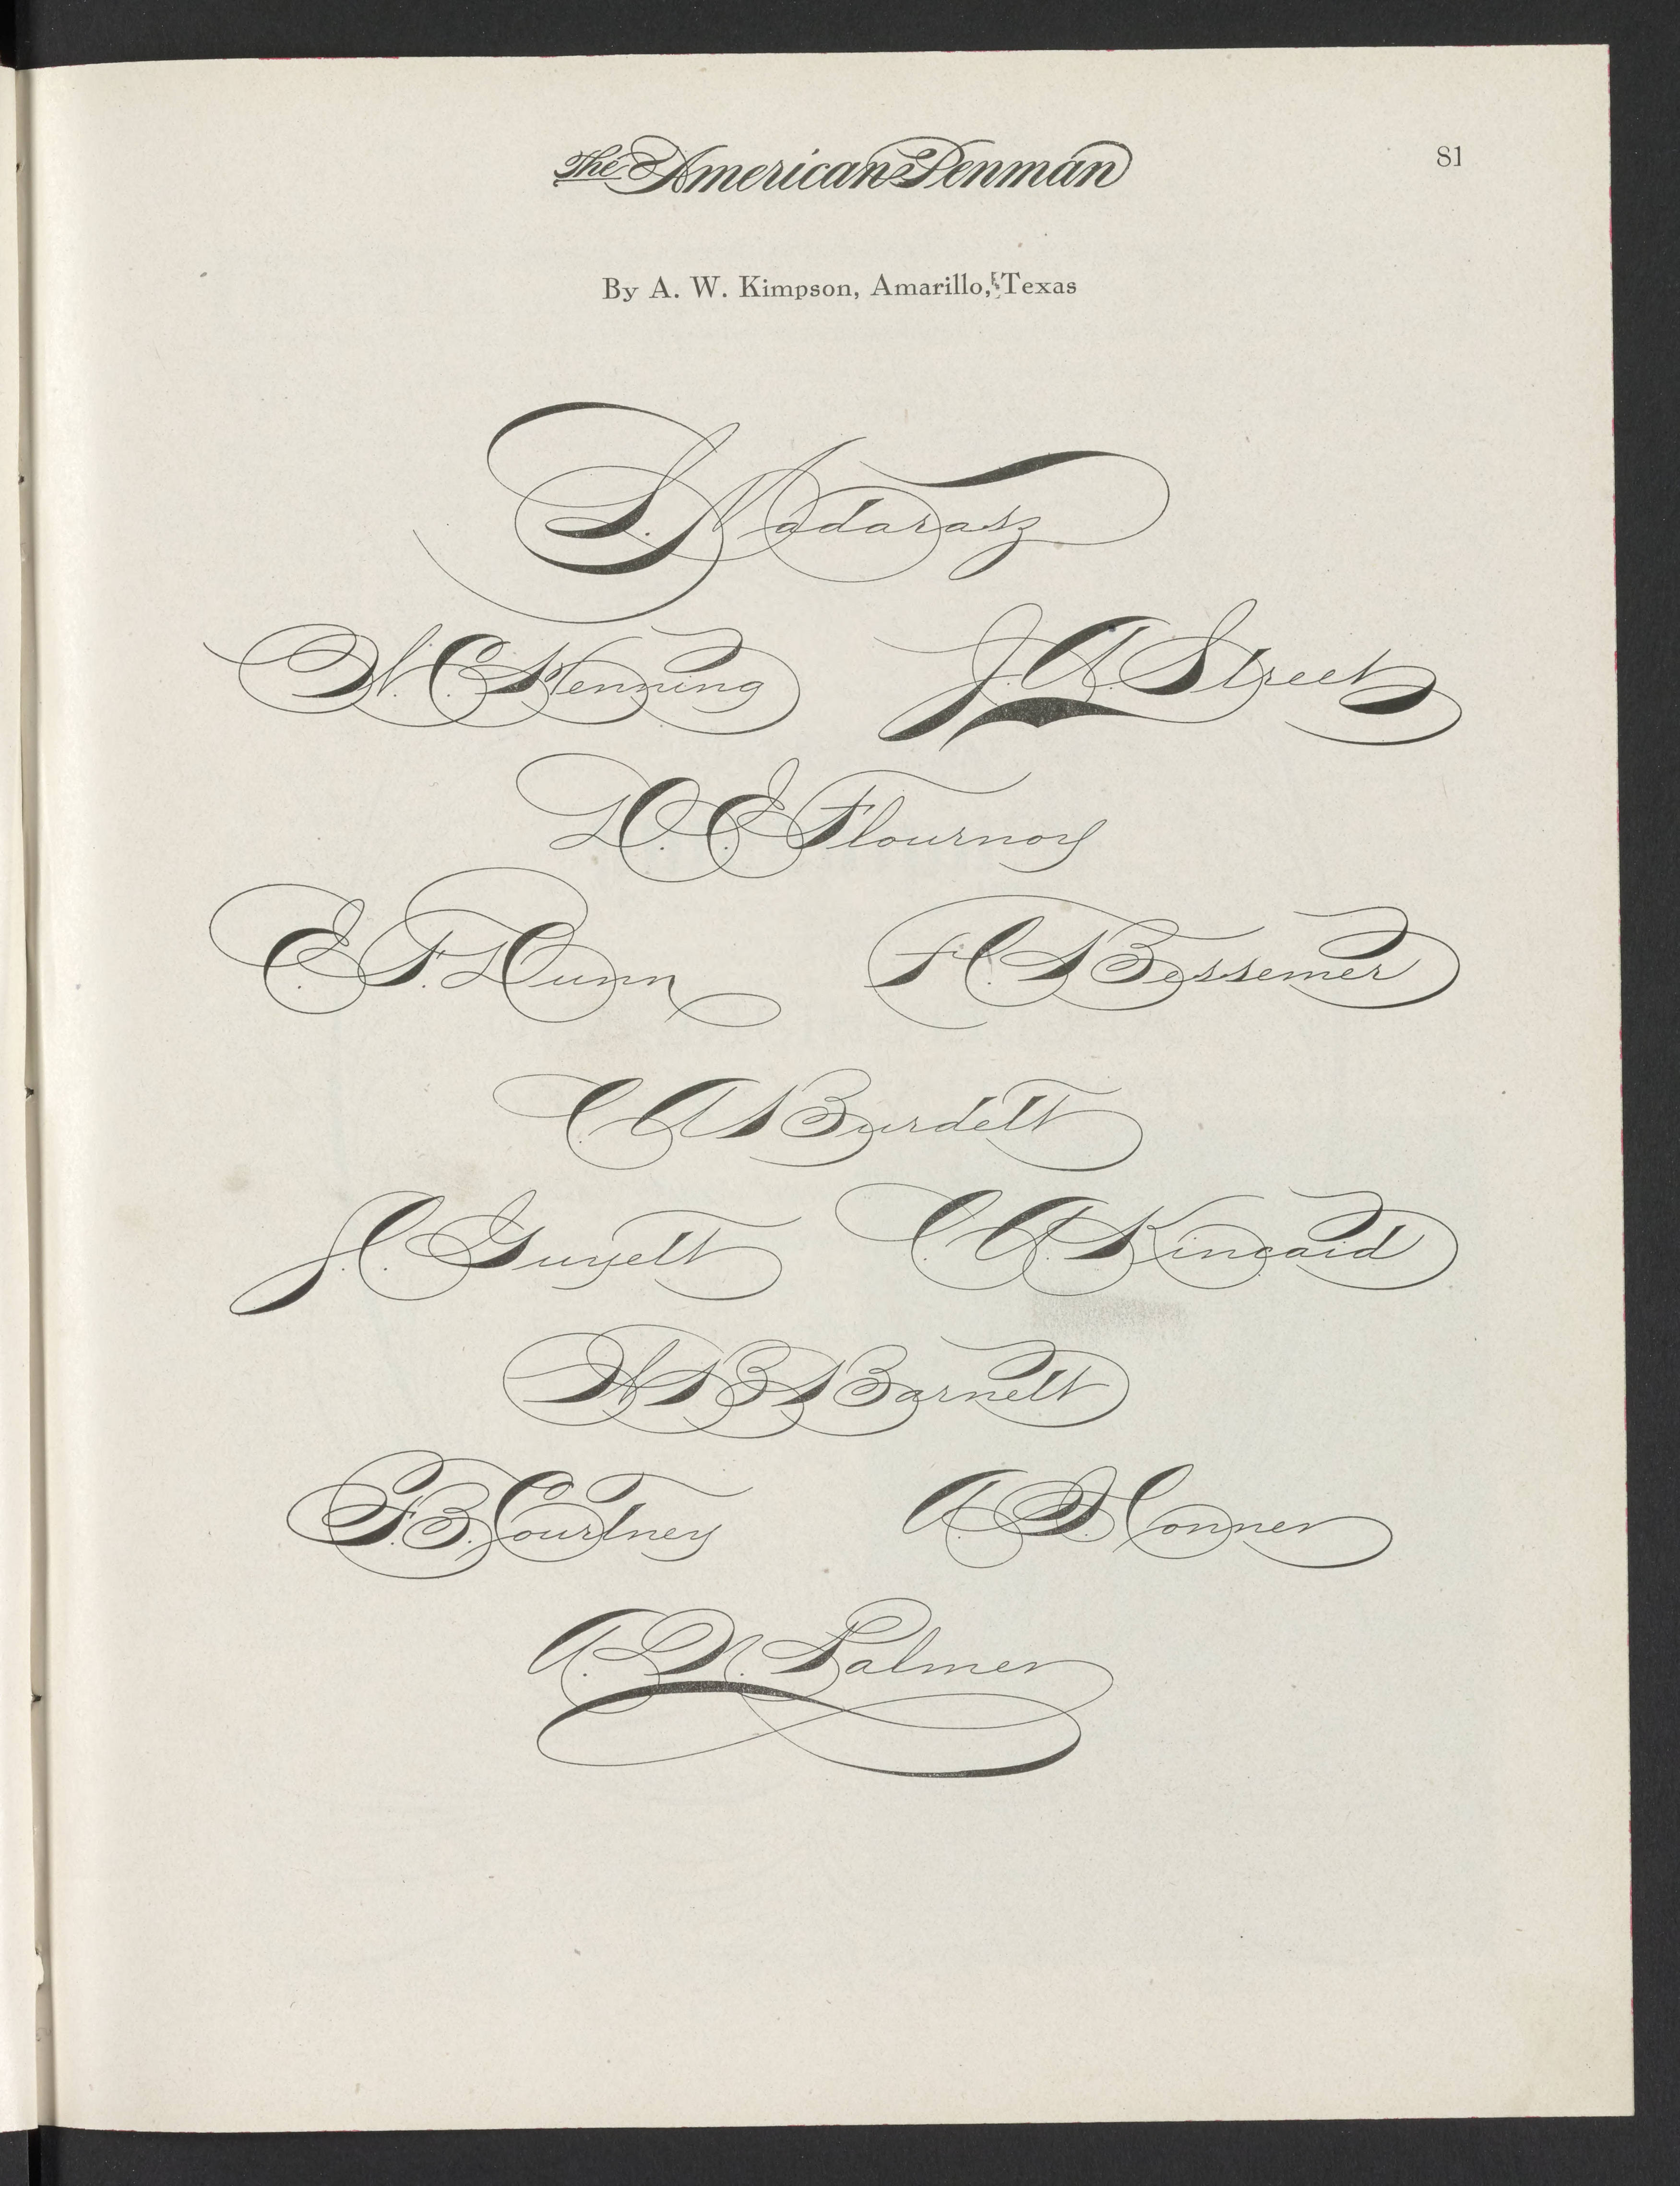 The American Penman
81
By A. W. Kimpson, Amarillo, Texas
L. Madarasz
W. C. Henning
J. A. Street
D. E. Flournoy
E. F. Dunn
H. C. Bessemer
C A Burdett
J. C. Guyett
C. A. Kincaid
W B Barnett
F. B. Courtney
A. D. Conner
A. N. Palmer